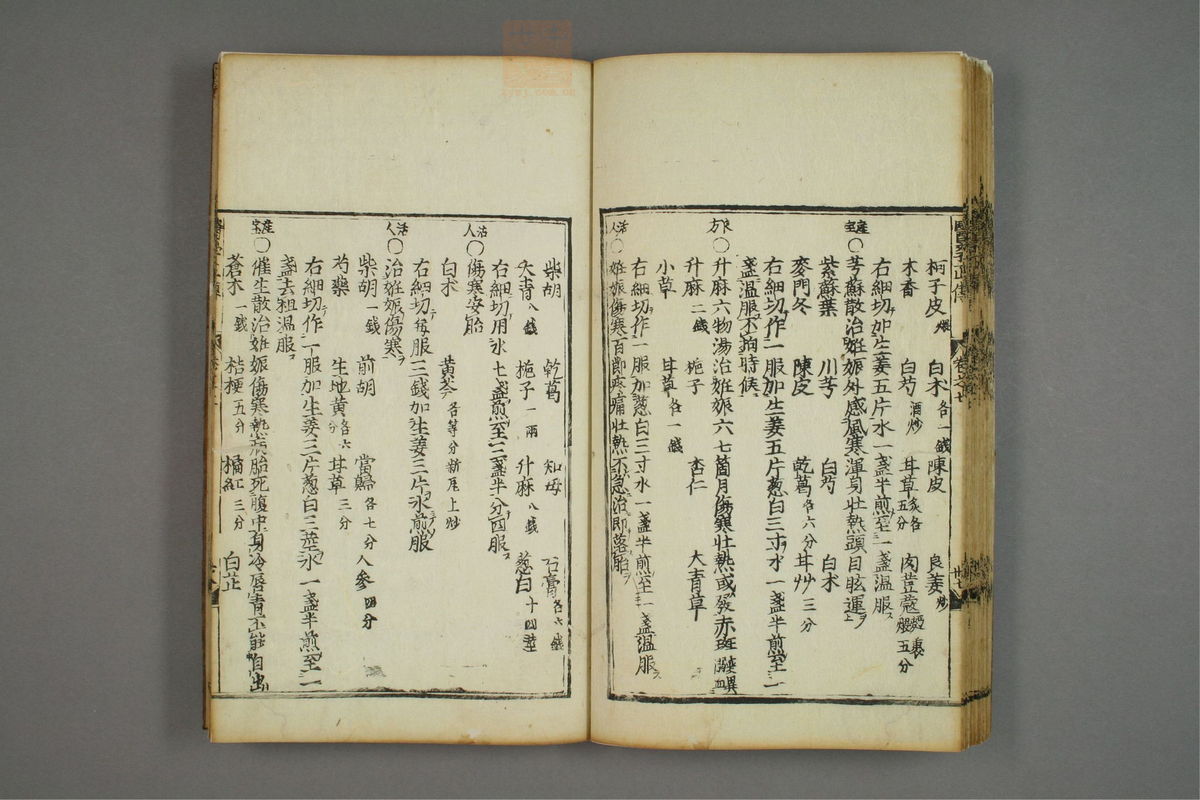 訶子皮 煨 白朮 各一錢 陳皮 良姜 炒
木香 白芍 酒炒 甘草 炙各五分 肉荳蔲 麪裹煨五分
右細切加生姜五片水一盞半煎至一盞溫服ス
産宝 〇芎蘇散治姙娠外感風寒渾身壯熱頭目眩運ヲ
紫蘇葉 川芎 白芍 白朮
麥門冬 陳皮 乾葛 各六分 甘艸 三分
右細切作一服加生姜五片葱白三寸水一盞半煎至一
盞溫服不拘時候
良方 〇升麻六物湯治姙娠六七箇月傷寒壯熱或發赤斑變異溺血
升麻 二錢 梔子 杏仁 大青草
小草 甘草 各一錢
右細切作一服加葱白三寸水一盞半煎至一盞溫服ス
活人 〇姙娠傷寒百節疼痛壯熱不急治即落胎
柴胡 乾葛 知母 石膏 各六錢
大青 八錢 梔子 一兩 升麻 八錢 葱白 十四莖
右細切用水七盞煎至三盞半分四服ス
活人 〇傷寒安胎
白朮 黄芩 各等分新尾上炒
右細切每服三錢加生姜三片水煎服
活人 〇治姙娠傷寒ヲ
柴胡 一錢 前胡 當歸 各七分 人參 四分
芍藥 生地黄 各六分 甘草 三分
右細切作一服加生姜三片葱白三莖水一盞半煎至一
盞去粗溫服ス
産宝 〇催生散治姙娠傷寒熱病胎死腹中身冷唇青不能自出
蒼朮 一錢 桔梗 五分 橘紅 三分 白芷